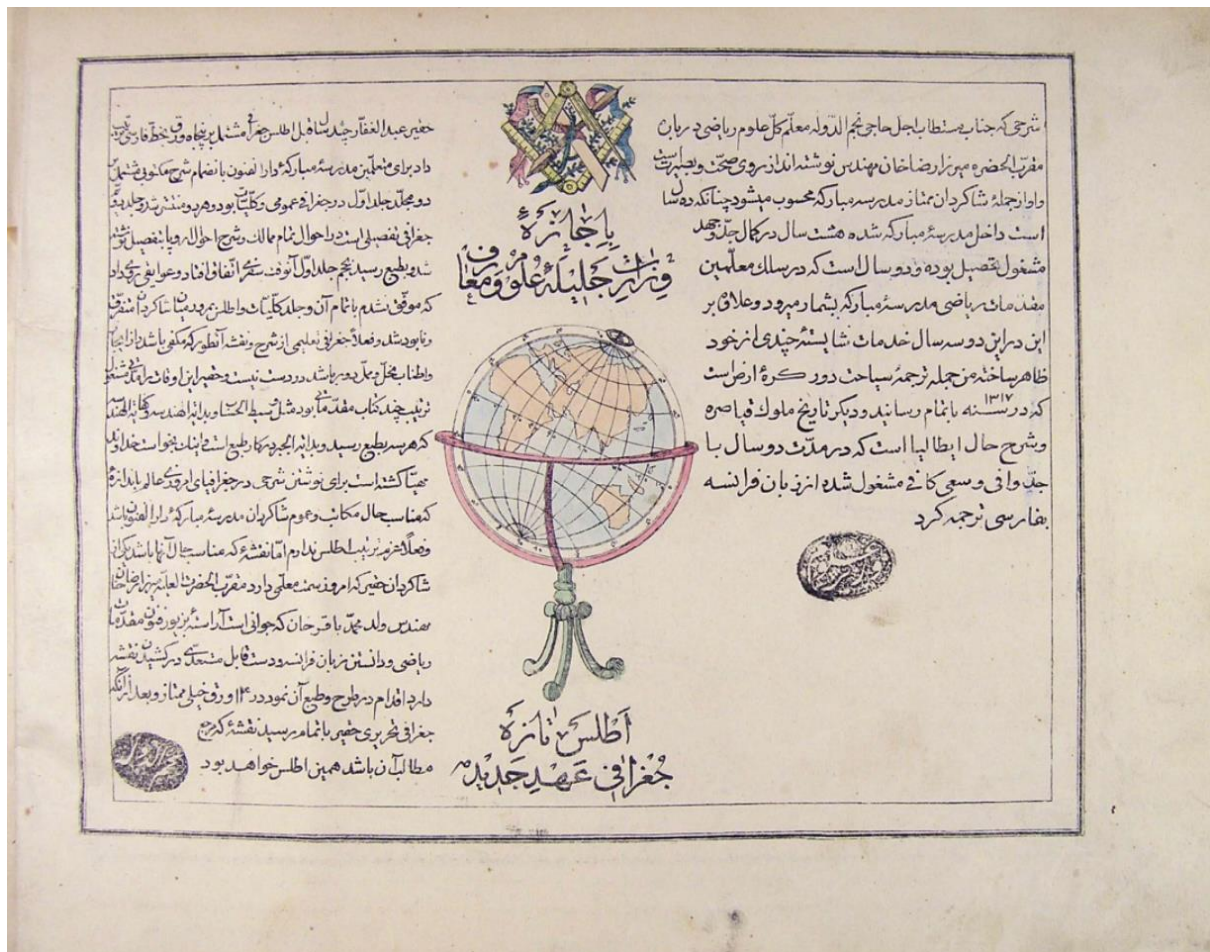 شرحی که جناب مستطاب اجل حاجی نجم الدوله معلم کل علوم ریاضی درباره
مقرب الحضره میرزا رضا خان مهندس نوشته اند از روی صحت و بصیرت است
و او از جملهٔ شاکردان ممتاز مدرسه مبارکه محسوب میشود چنانکه ده سال
است داخل مدرسهٔ مبارکه شده هشت سال در کمال جد و جهد
مشغول تحصیل بوده و دو سال است که در سلک معلمین
مقدمات ریاضی مدرسهٔ مبارکه بشمار میرود و علاوه بر
این در این دو سه سال خدمات شایستهٔ چندی از خود
ظاهر ساخته من جمله ترجمهٔ سیاحت دور کرهٔ ارض است
که در سنه ۱۳۱۷ باتمام رسانید و دیکر تاریخ ملوک قیاصره
و شرح حال ایطالیا است که در مدت دو سال با
جد وافی و سعی کافی مشغول شده از زبان فرانسه
بفارسی ترجمه کرد
باجازهٔ
وزارت جلیلهٔ علوم و معارف
اطلس تازهٔ
جغرافی عهد جدید
حقیر عبدالغفار چندین سال قبل اطلس جغرافی مشتمل بر پنجاه ورق بخط فارسی ترتیب
داد برای متعلمین مدرسهٔ مبارکه دارالفنون بانضمام شرح مکتوبی مشتمل بر
دو مجلد جلد اول در جغرافی عمومی و کلیات بود و هر دو منتشر شد و جلد دویم
جغرافی تفصیلی است در احوال تمام ممالک و شرح احوال اروپا بتفصیل نوشته
شد و بطبع رسید پنجم جلد اول آنوقت سفری اتفاق افتاد و عوایقی روی داد
که موفق نشدم باتمام آن و جلد کلیات و اطلس بمرور میان شاکردان متفرق
و نابود شد و فعلاً جغرافی تعلیمی از شرح و نقشه آنطور که مکفی باشد و از ایجاز
و اطناب مخل و ممل دور باشد در دست نیست و حقیر این اوقات را مشغول
ترتیب چند کتاب مقدماتی بود مثل وسیط الحساب و بدایة الهندسه و کفایة الهندسه
که هر سه بطبع رسید و بدایة الجبر در کار طبع است
مهیا کشته است برای نوشتن شرحی در جغرافیای امروزی عالم باندازهٔ
که مناسب حال مکاتب و عموم شاکردان مدرسهٔ مبارکهٔ دارالفنون باشد
و فعلاً عزم ترتیب اطلس ندارم اما نقشهٔ که مناسب حال آنها باشد یکی از
شاکردان حقیر که امروز سمت معلمی دارد مقرب الحضرت العلیه میرزا رضا خان
مهندس ولد محمد باقر خان که جوانی است آراسته بزیور فنون مقدمات
ریاضی و دانستن زبان فرانسه و دست قابل مستعدی در کشیدن نقشه
دارد اقدام در طرح و طبع آن نمود در ۱۴ ورق خیلی ممتاز و بعد از آنکه
جغرافی تحریری حقیر باتمام رسید نقشهٔ که مرجع
مطالب آن باشد همین اطلس خواهد بود